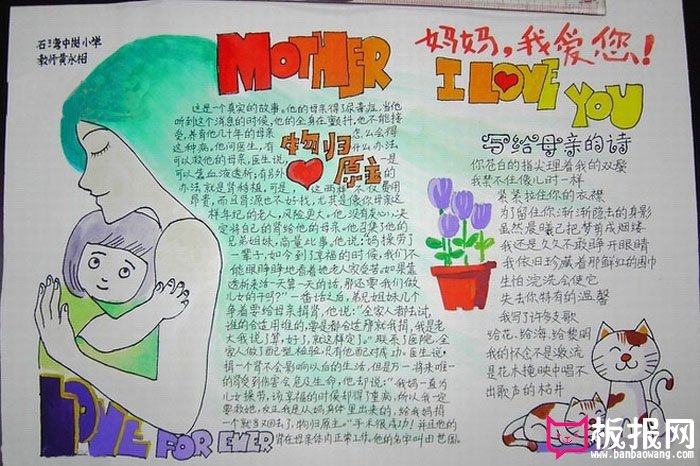 石湾中围小学
教师黄永相
MOTHER
妈妈,我爱您!
I LOVE YOU
物归
原主
这是一个真实的故事。他的母亲得了尿毒症,当他
听到这个消息的时候,他的全身在颤抖,他不能接
受,养育他几十年的母亲 怎么会得
这种病,他问医生,有 什么办法
可以救他的母亲,医生说, 一是
可以靠血液透析;有另外
办法就是肾移植,可是, 这两样不仅费用
昂贵,而且肾源也不好找,尤其是像你母亲这
样年纪的老人,风险更大。他没有灰心,决
定将自己的肾给他的母亲。他召集了他的
兄弟姐妹,商量此事。他说:妈操劳了
一辈子,如今到了享福的时候,我们不
能眼睁睁地看着她老人家受苦。如果靠
透析来活一天算一天的话,那还要我们做
儿女的干吗?”一番话之后,弟兄姐妹几个
争着要给母亲捐肾,他说:“全家人都去试,
谁的合适用谁的,要是都合适那就我捐,我是老
大我说了算,好了,就这样定了。”联系了医院,全
家人做了配型检验,只有他配对成功。医生说:
捐一个肾不会影响以后的生活,但是万一将来唯一
的肾受到伤害会危及生命,他却说:“我妈一直为
儿女操劳,该享福的时候却得了重病,所以我一定
要救她,反正我是从妈身体里出来的,给我妈捐
一个就当又回去了,物归原主。”手术很成功!并且他的
肾在母亲体内正常工作,他的名字叫田世国。
LOVE FOR EVER
写给母亲的诗
你苍白的指尖理着我的双鬓
我禁不住像儿时一样
紧紧拉住你的衣襟
为了留住你渐渐隐去的身影
虽然晨曦已把梦剪成烟缕
我还是久久不敢睁开眼睛
我依旧珍藏着那鲜红的围巾
生怕浣洗会使它
失去你特有的温馨
我写了许多支歌
给花、给海、给黎明
我的怀念不是激流
是花木掩映中唱不
出歌声的枯井
板报网
www.banbaowang.com